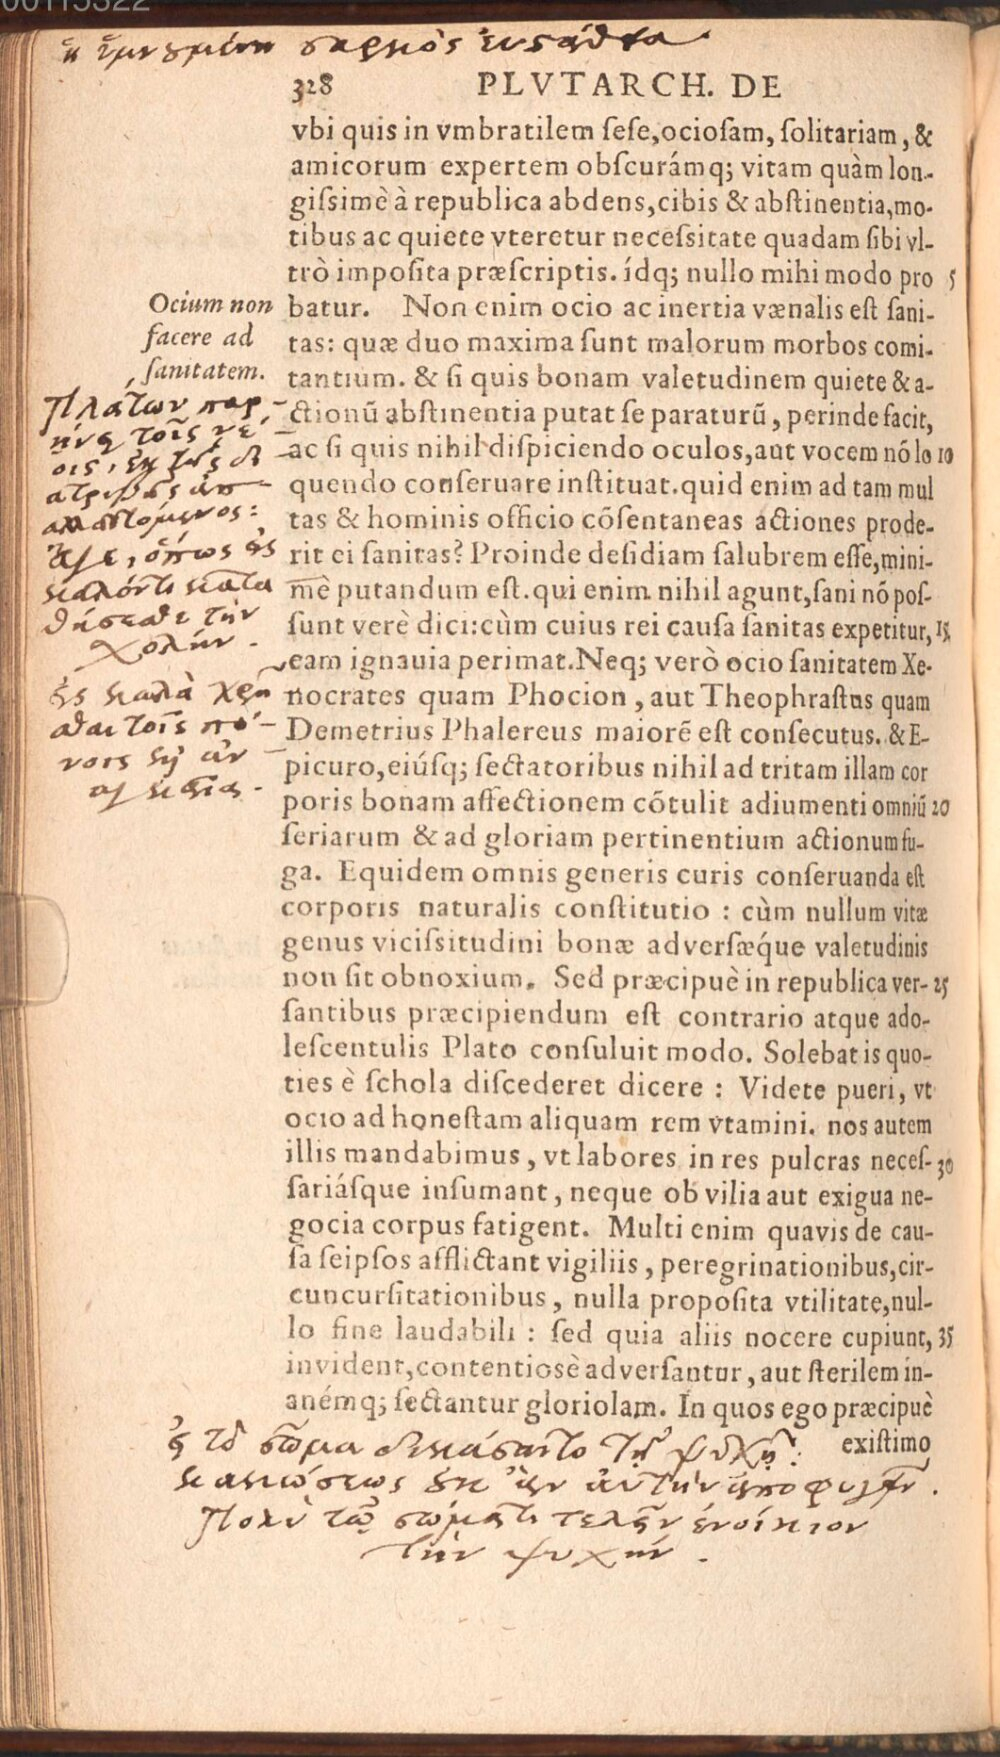 00115322
σαρκὸς
328 PLVTARCH. DE
vbi quis in vmbratilem ſeſe, ocioſam, ſolitariam, &
amicorum expertem obſcurámq; vitam quàm lon-
giſsimè à republica abdens, cibis & abſtinentia, mo-
tibus ac quiete vteretur neceſsitate quadam ſibi vl-
trò impoſita præſcriptis. ídq; nullo mihi modo pro 5
batur. Non enim ocio ac inertia vænalis eſt ſani-
tas: quæ duo maxima ſunt malorum morbos comi-
tantium. & ſi quis bonam valetudinem quiete & a-
ctionū abſtinentia putat ſe paraturū, perinde facit,
ac ſi quis nihil diſpiciendo oculos, aut vocem nō lo 10
quendo conſeruare inſtituat. quid enim ad tam mul
tas & hominis officio cōſentaneas actiones prode-
rit ei ſanitas? Proinde deſidiam ſalubrem eſſe, mini-
mè putandum eſt. qui enim nihil agunt, ſani nō poſ-
ſunt verè dici: cùm cuius rei cauſa ſanitas expetitur, 15
eam ignauia perimat. Neq; verò ocio ſanitatem Xe-
nocrates quam Phocion, aut Theophraſtus quam
Demetrius Phalereus maiorē eſt conſecutus. & E-
picuro, eiúſq; ſectatoribus nihil ad tritam illam cor
poris bonam affectionem cōtulit adiumenti omniū 20
ſeriarum & ad gloriam pertinentium actionum fu-
ga. Equidem omnis generis curis conſeruanda eſt
corporis naturalis conſtitutio : cùm nullum vitæ
genus viciſsitudini bonæ adverſæque valetudinis
non ſit obnoxium. Sed præcipuè in republica ver- 25
ſantibus præcipiendum eſt contrario atque ado-
leſcentulis Plato conſuluit modo. Solebat is quo-
ties è ſchola diſcederet dicere : Videte pueri, vt
ocio ad honeſtam aliquam rem vtamini. nos autem
illis mandabimus, vt labores in res pulcras neceſ- 30
ſariáſque inſumant, neque ob vilia aut exigua ne-
gocia corpus fatigent. Multi enim quavis de cau-
ſa ſeipſos afflictant vigiliis, peregrinationibus, cir-
cuncurſitationibus, nulla propoſita vtilitate, nul-
lo fine laudabili : ſed quia aliis nocere cupiunt, 35
invident, contentioſè adverſantur, aut ſterilem in-
anémq; ſectantur gloriolam. In quos ego præcipuè
exiſtimo
Ocium non
facere ad
ſanitatem.
Πλάτων παρ
τοῖς νέ
οις
ὅπως
κατα
τὴν
χολὴν.
καλὰ
τοῖς πό
νοις
τὸ σῶμα δικάσαιτο τῇ ψυχῇ:
κακώσεως αὐτὴν
Πολὺ τῷ σώματι τελεῖν ἐνοίκιον
τὴν ψυχήν.